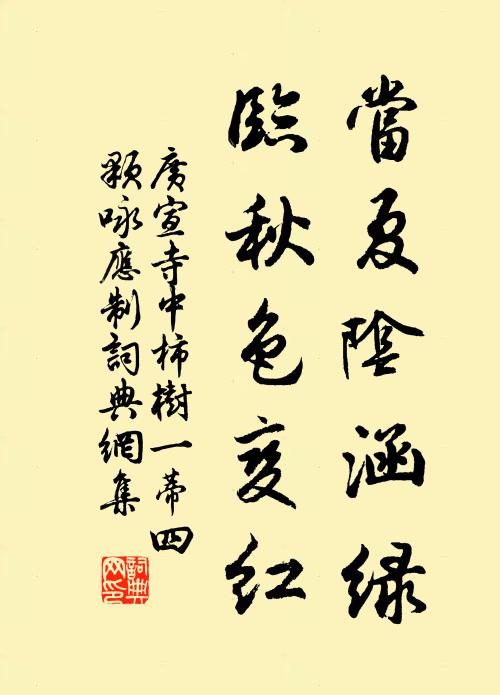 當夏陰涵緑
臨秋色變紅
廣宣寺中柿樹一蒂四
顆咏應制詞典網集
詞典网印